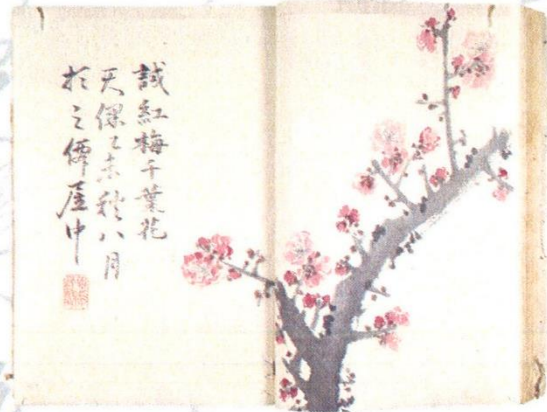 試紅梅千葉花
天保乙未秋八月
於之僑居中